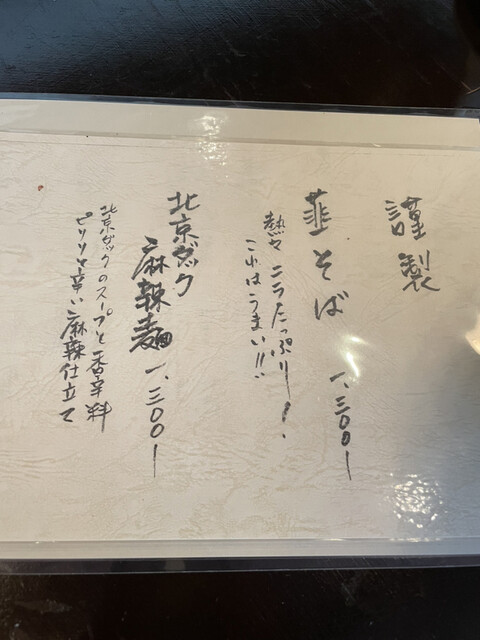 謹製
韮そば 一、三〇〇ー
熱々ニラたっぷり!、
これはうまい!!
北京ダック
麻辣麺 一、三〇〇ー
北京ダックのスープと香辛料
ピリリと辛い麻辣仕立て